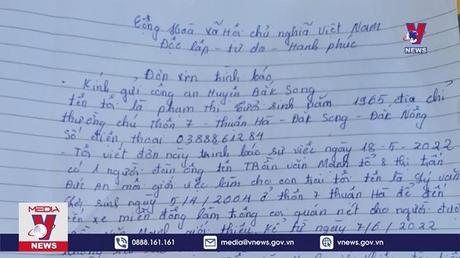 Cộng Hoà xã Hội chủ nghĩa Việt Nam
Độc lập - tự do - Hạnh phúc
Đơn xin trình báo
Kính gửi công an Huyện Đăk Song
tên tôi là phạm Thị sinh năm 1965 địa chỉ
thường chú Thôn 7 - Thuần Hà - Đăk Song - Đăk Nông
Số điện thoại 0388861284
Tôi viết đơn này trình báo sự việc ngày 18-5-2022
có 1 người đàn ông tên Trần văn Mạnh tổ 8 thị trấn
Đức An môi giới việc làm cho con trai tôi tên là văn
sinh ngày 5/4/2004 ở thôn 7 thuần Hà để đến
xe miền đông làm trông coi quán nét cho người
Mạnh giới thiệu kể từ ngày 7/6/2022
V
NEWS
MEDIA
V
NEWS
0888.161.161
media@vnews.gov.vn
vnews.gov.vn